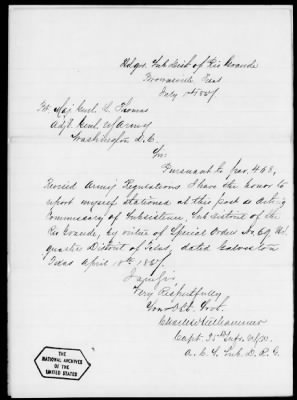 Hdqrs. Sub Dist of Rio Grande
Brownsville Texas
July 1st 1867
Maj Genl L. Thomas
Adjt. Genl. U.S. Army
Washington D.C.
Sir:
Pursuant to Par. 468,
Revised Army Regulations I have the honor to
report myself stationed at this post as Acting
Commissary of Subsistence, Sub District of the
Rio Grande, by virtue of Special Orders No. 69, Head
quarters District of Texas, dated Galveston
Texas April 18th 1867.
I am Sir
Very Respectfully
Your Obt. Servt.
Charles
Capt. 35th Infy. U.S.A.
A.C.S. Sub. D. R. G.
THE
NATIONAL ARCHIVES
OF THE
UNITED STATES